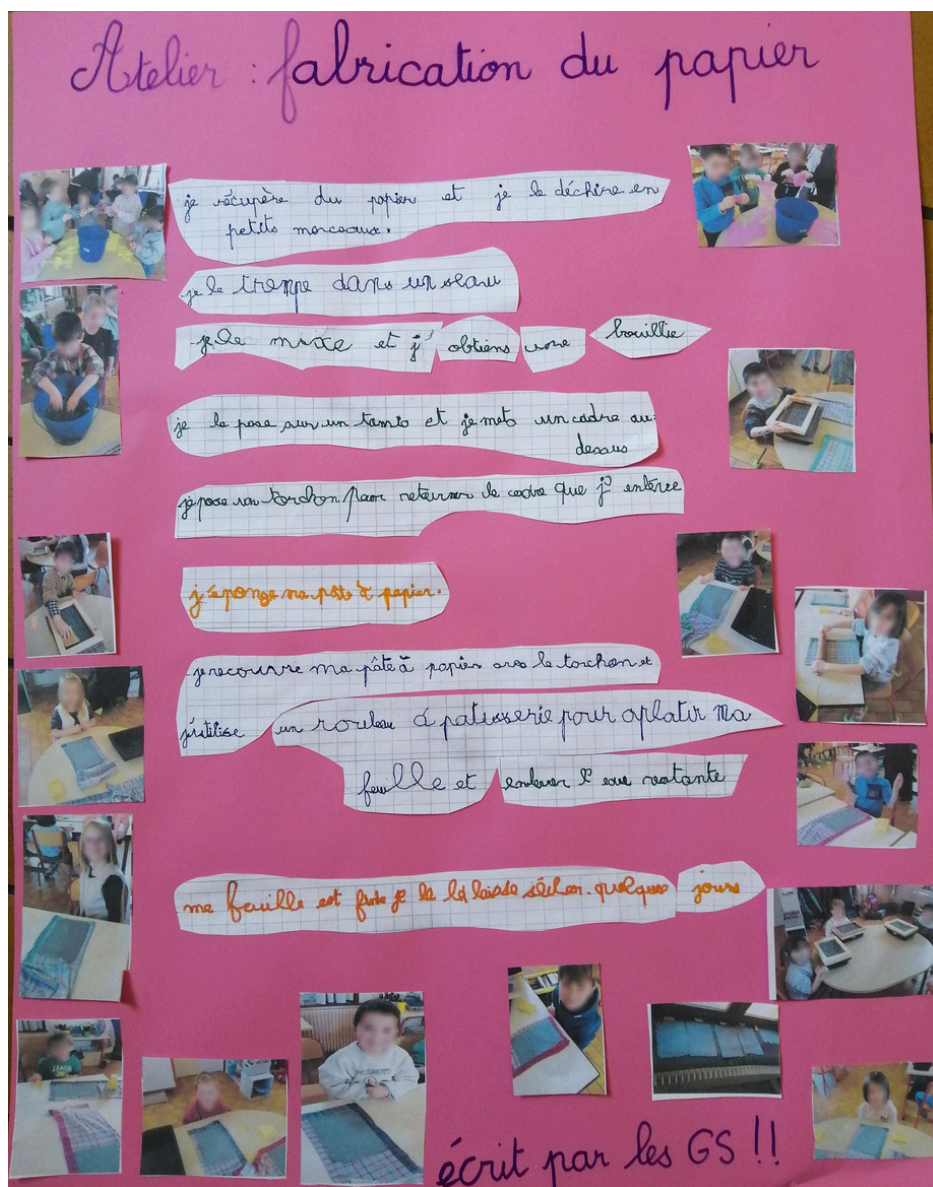 Atelier : fabrication du papier
je récupère du papier et je le déchire en
petits morceaux.
je le trempe dans un seau
je le mixe et j' obtiens une bouillie
je le pose sur un tamis et je mets un cadre au
dessus
je pose un torchon pour retourner le cadre que j' enlève
j'éponge ma pâte à papier.
je recouvre ma pâte à papier avec le torchon et
j'utilise un rouleau à patisserie pour aplatir ma
feuille et enlever l'eau restante
ma feuille est finie je le la laisse sécher quelques jours
écrit par les GS !!